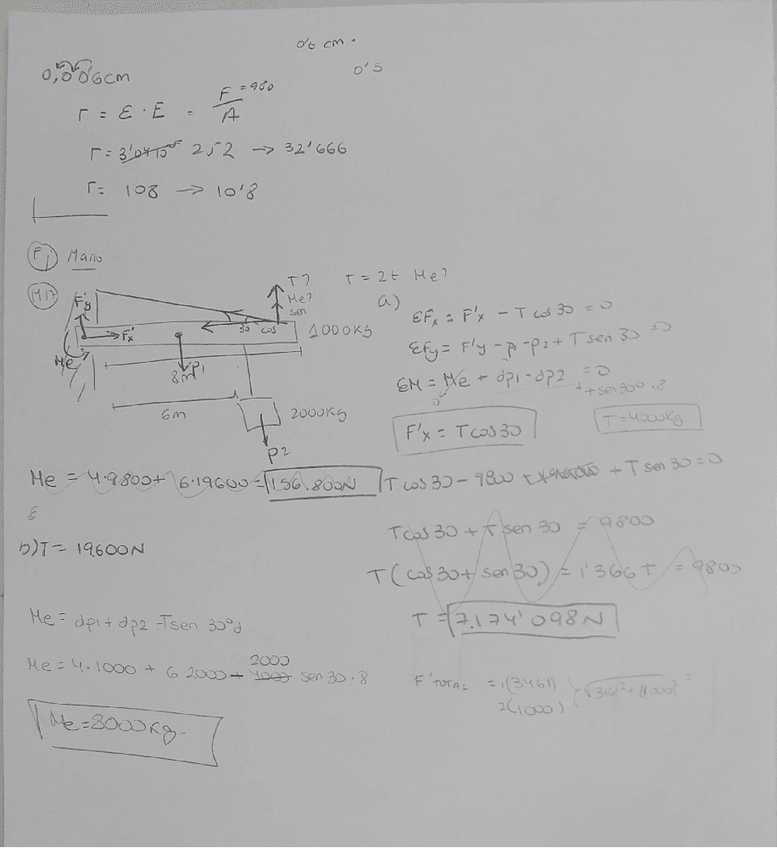 0'6 cm.
0,006cm
0'5
Γ = ε · E = F =980 / A
Γ = 3'04 10 252 → 32'666
Γ = 108 → 10'8
F1 Mano
M17
T? T = 2t Me?
F'y Me? a)
sen
30 cos 1000KG
F'x
Me
8m P1
6m 2000KG
P2
ΣFx = F'x - T cos 30 = 0
ΣFy = F'y - P1 - P2 + T sen 30 = 0
ΣM = Me + dp1 - dp2 = 0
+ tsen30º.8
F'x = T cos 30
T = 4000kg
Me = 4·9800 + 6·19600 = 156.800N
T cos 30 - 9800 + T sen 30 = 0
ε
T cos 30 + T sen 30 = 9800
b) T = 19,600 N
T (cos 30 + sen 30) = 1'366 T = 9800
T = 7.174'098 N
Me = dp1 + dp2 - T sen 30º d
Me = 4·1000 + 6 2000 + 4000 2000 sen 30·8
F'TOTAL = 1(3461)
2(1000)
√3461² + (1000)² =
Me = 8000 Kg.